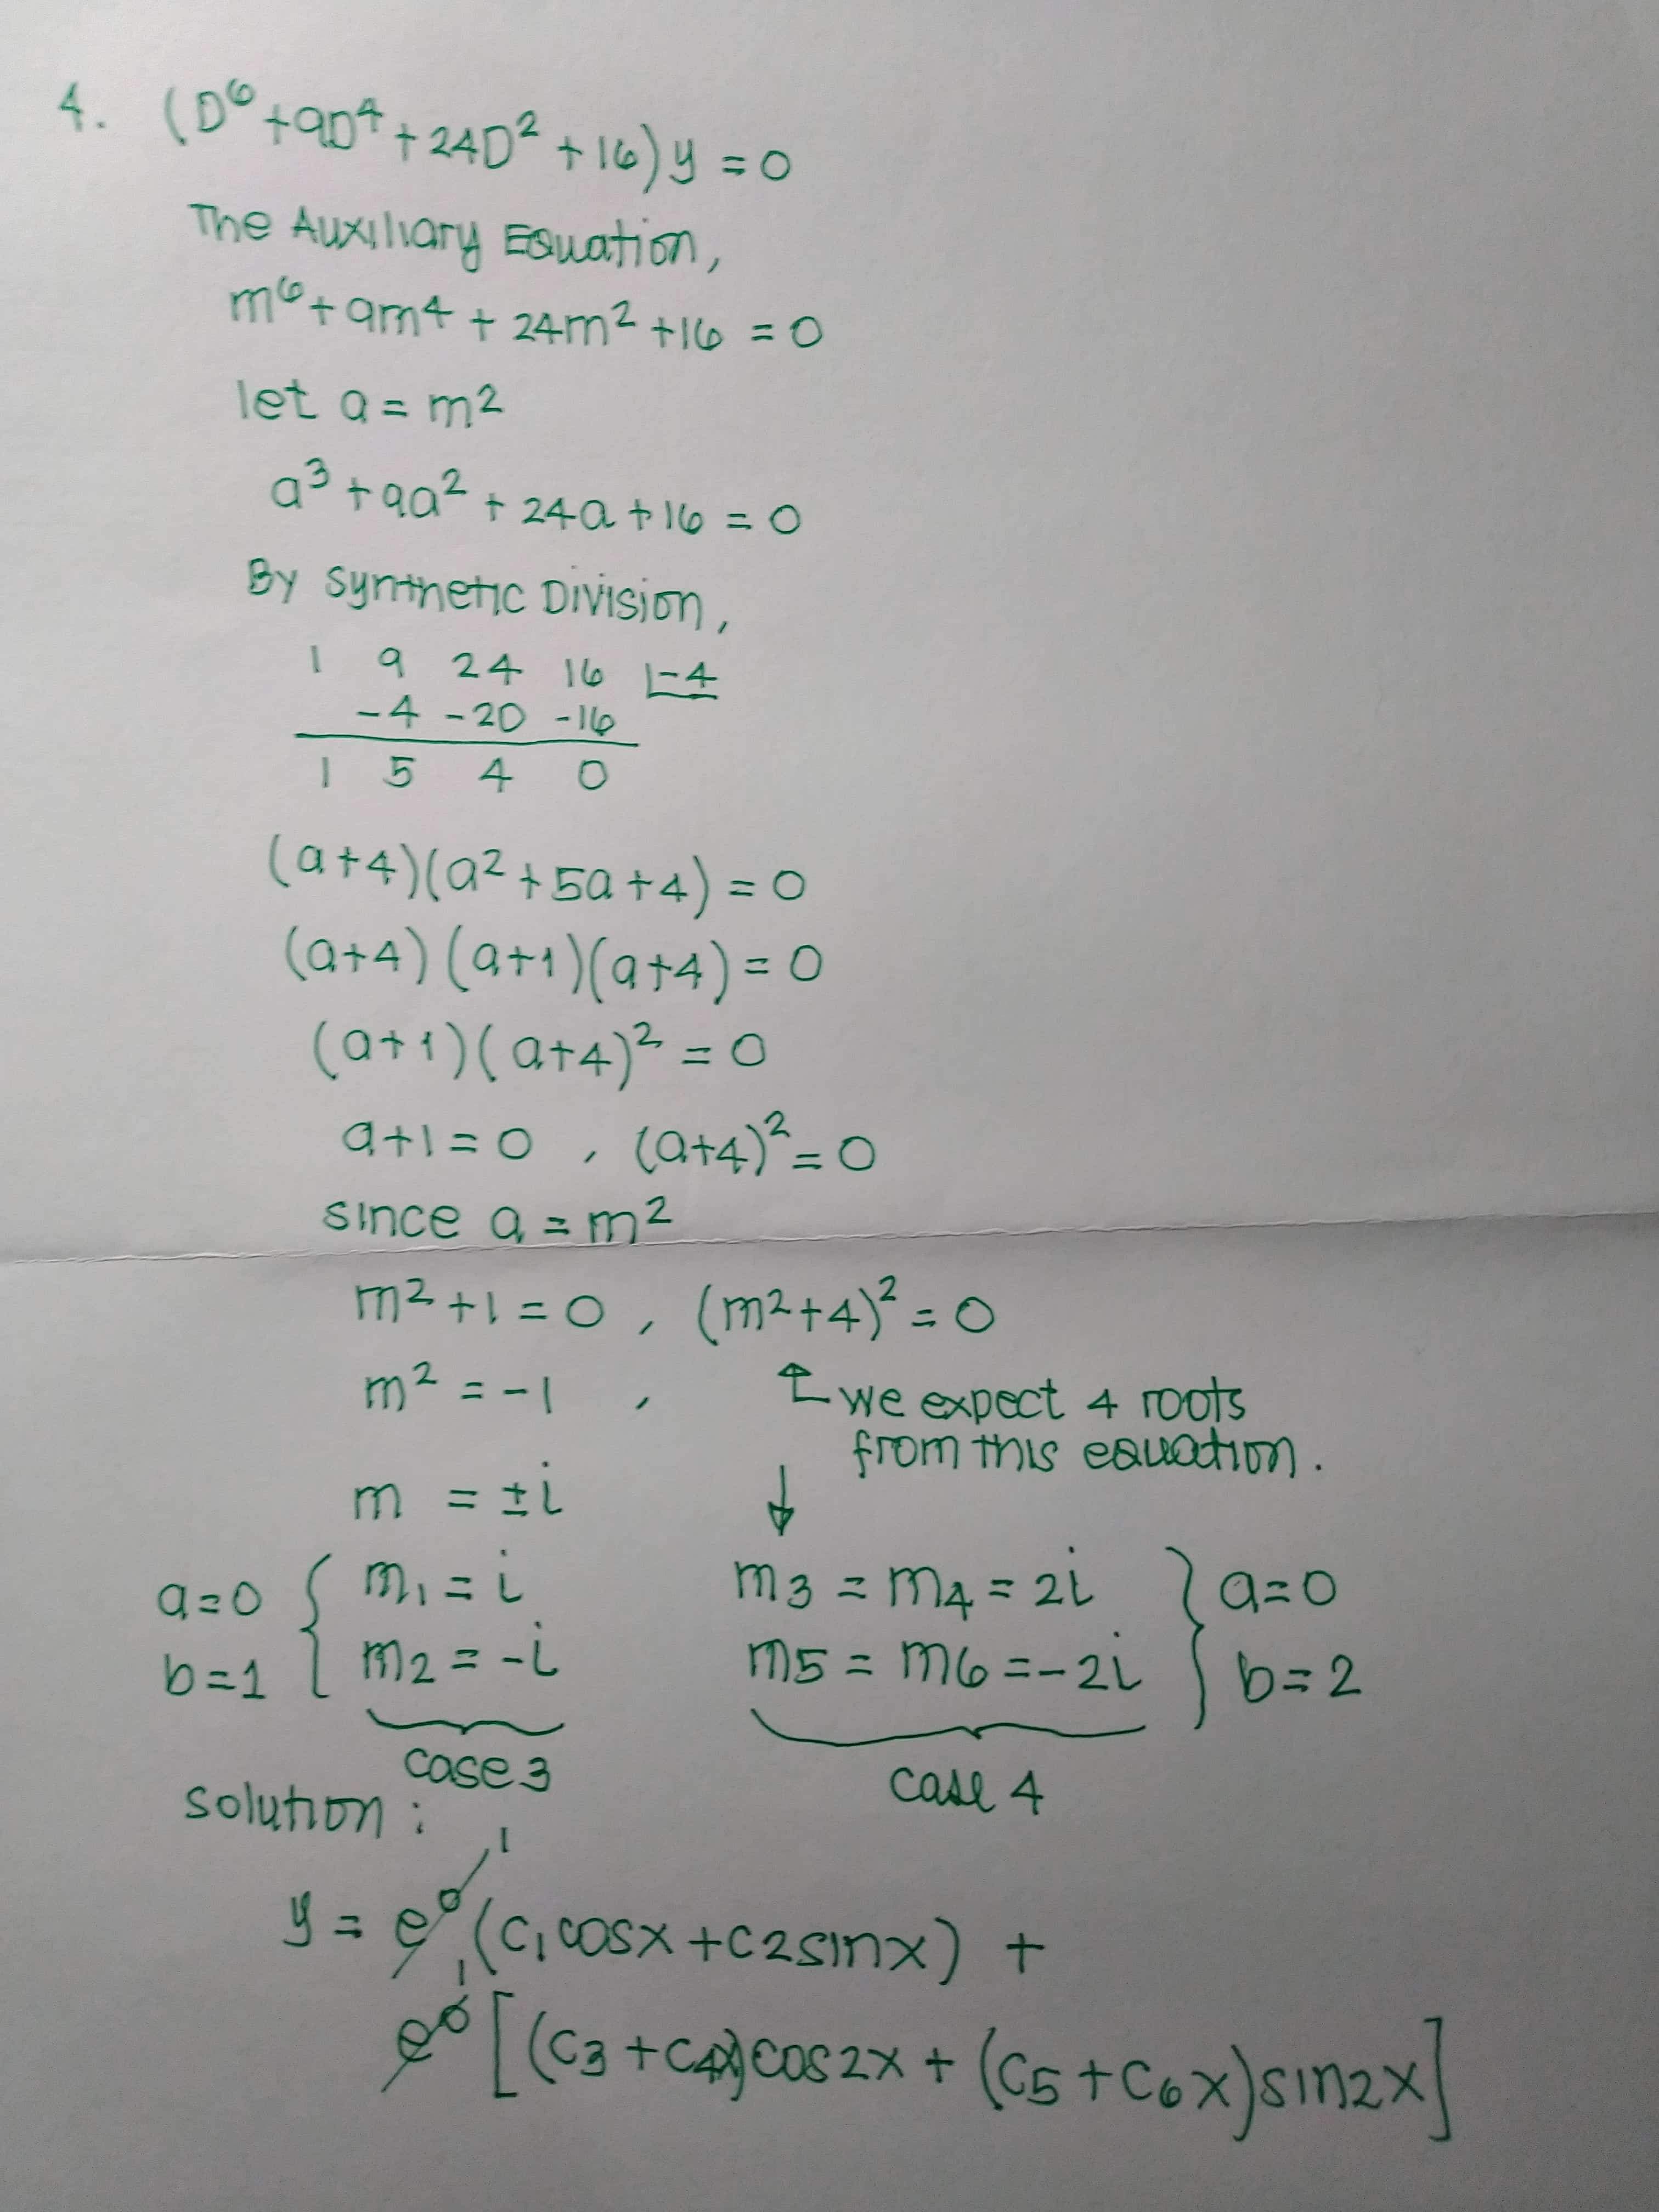 4. (D⁶+9D⁴+24D²+16)y=0
The Auxiliary Equation,
m⁶+9m⁴+24m²+16=0
let a=m²
a³+9a²+24a+16=0
By Synthetic Division,
1 9 24 16 |-4
-4 -20 -16
1 5 4 0
(a+4)(a²+5a+4)=0
(a+4)(a+1)(a+4)=0
(a+1)(a+4)²=0
a+1=0 , (a+4)²=0
since a=m²
m²+1=0 , (m²+4)²=0
m²=-1 , ↑ we expect 4 roots
from this equation.
m = ±i ↓
a=0 { m₁=i m3=m4=2i } a=0
b=1 { m2=-i m5=m6=-2i } b=2
case 3 case 4
solution :
y = e⁰ 1 (c₁cosx+c2sinx) +
e⁰ 1 [(c3+c4x)cos2x+(c5+c6x)sin2x]